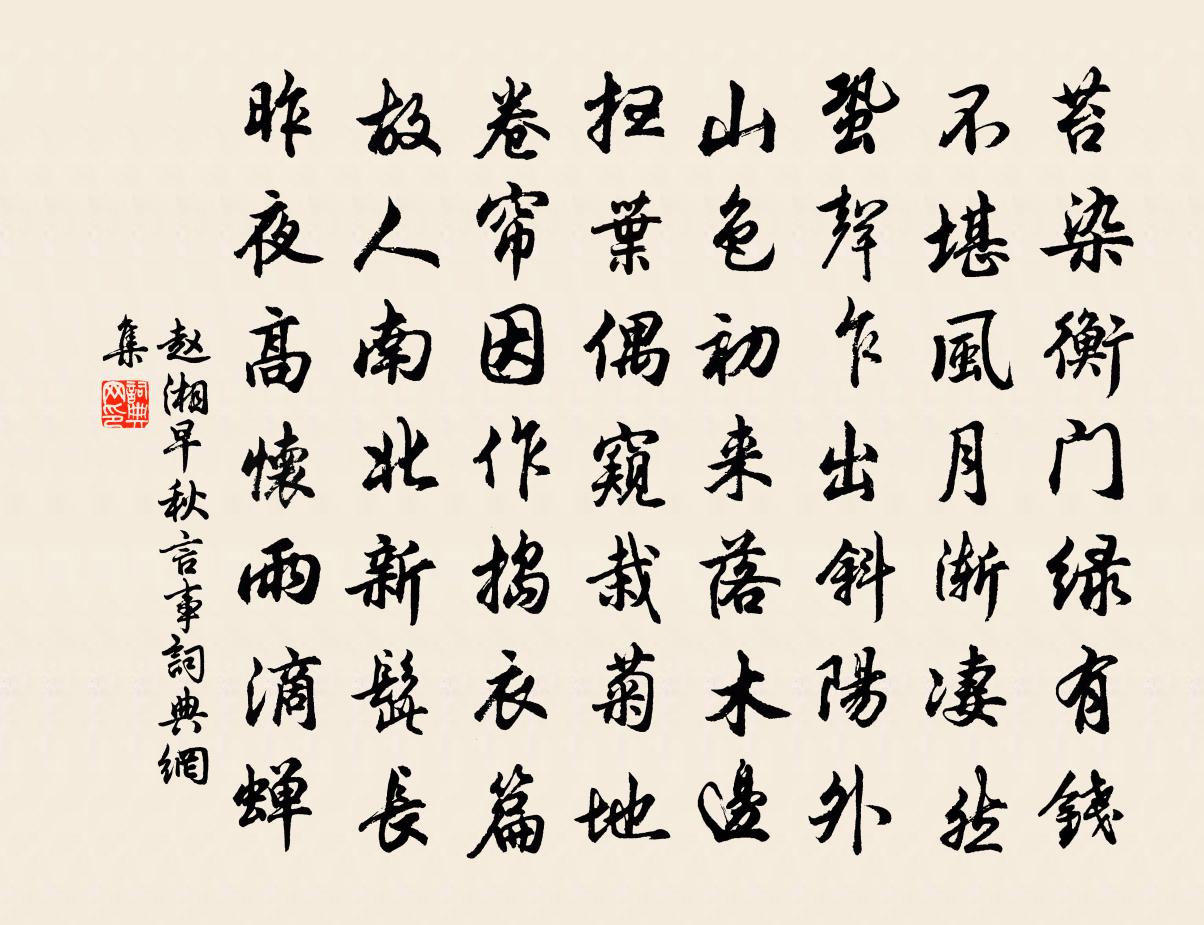 苔染衡门绿有錢
不堪風月漸凄然
蛩聲乍出斜陽外
山色初来落木邊
扫葉偶窺栽菊地
卷帘因作搗衣篇
故人南北新髭長
昨夜高懷雨滴蝉
赵湘早秋言事詞典網
集
詞典网印